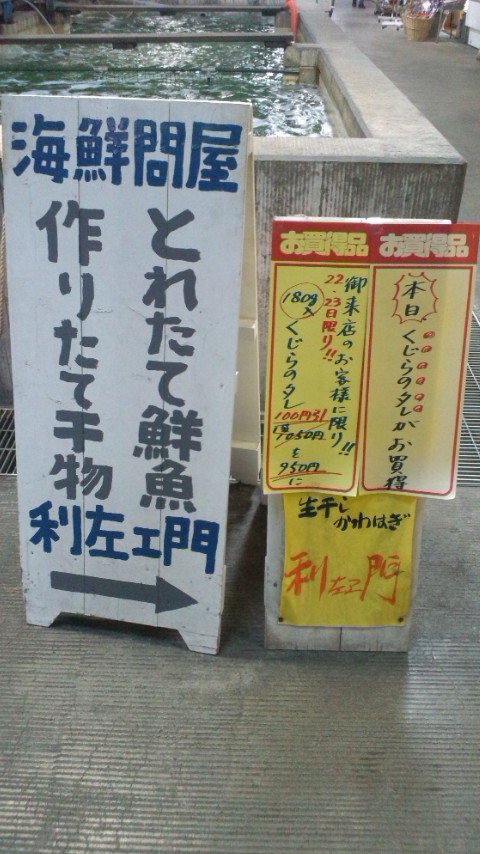 海鮮問屋
とれたて鮮魚
作りたて干物
利左ェ門
お買得品
お買得品
本日
くじらのタレが
お買得
御来店のお客様に限り!!
22、23日限り!!
180g入
くじらのタレ
100円引
1050円を
950円に
生干し
かわはぎ
利左ェ門